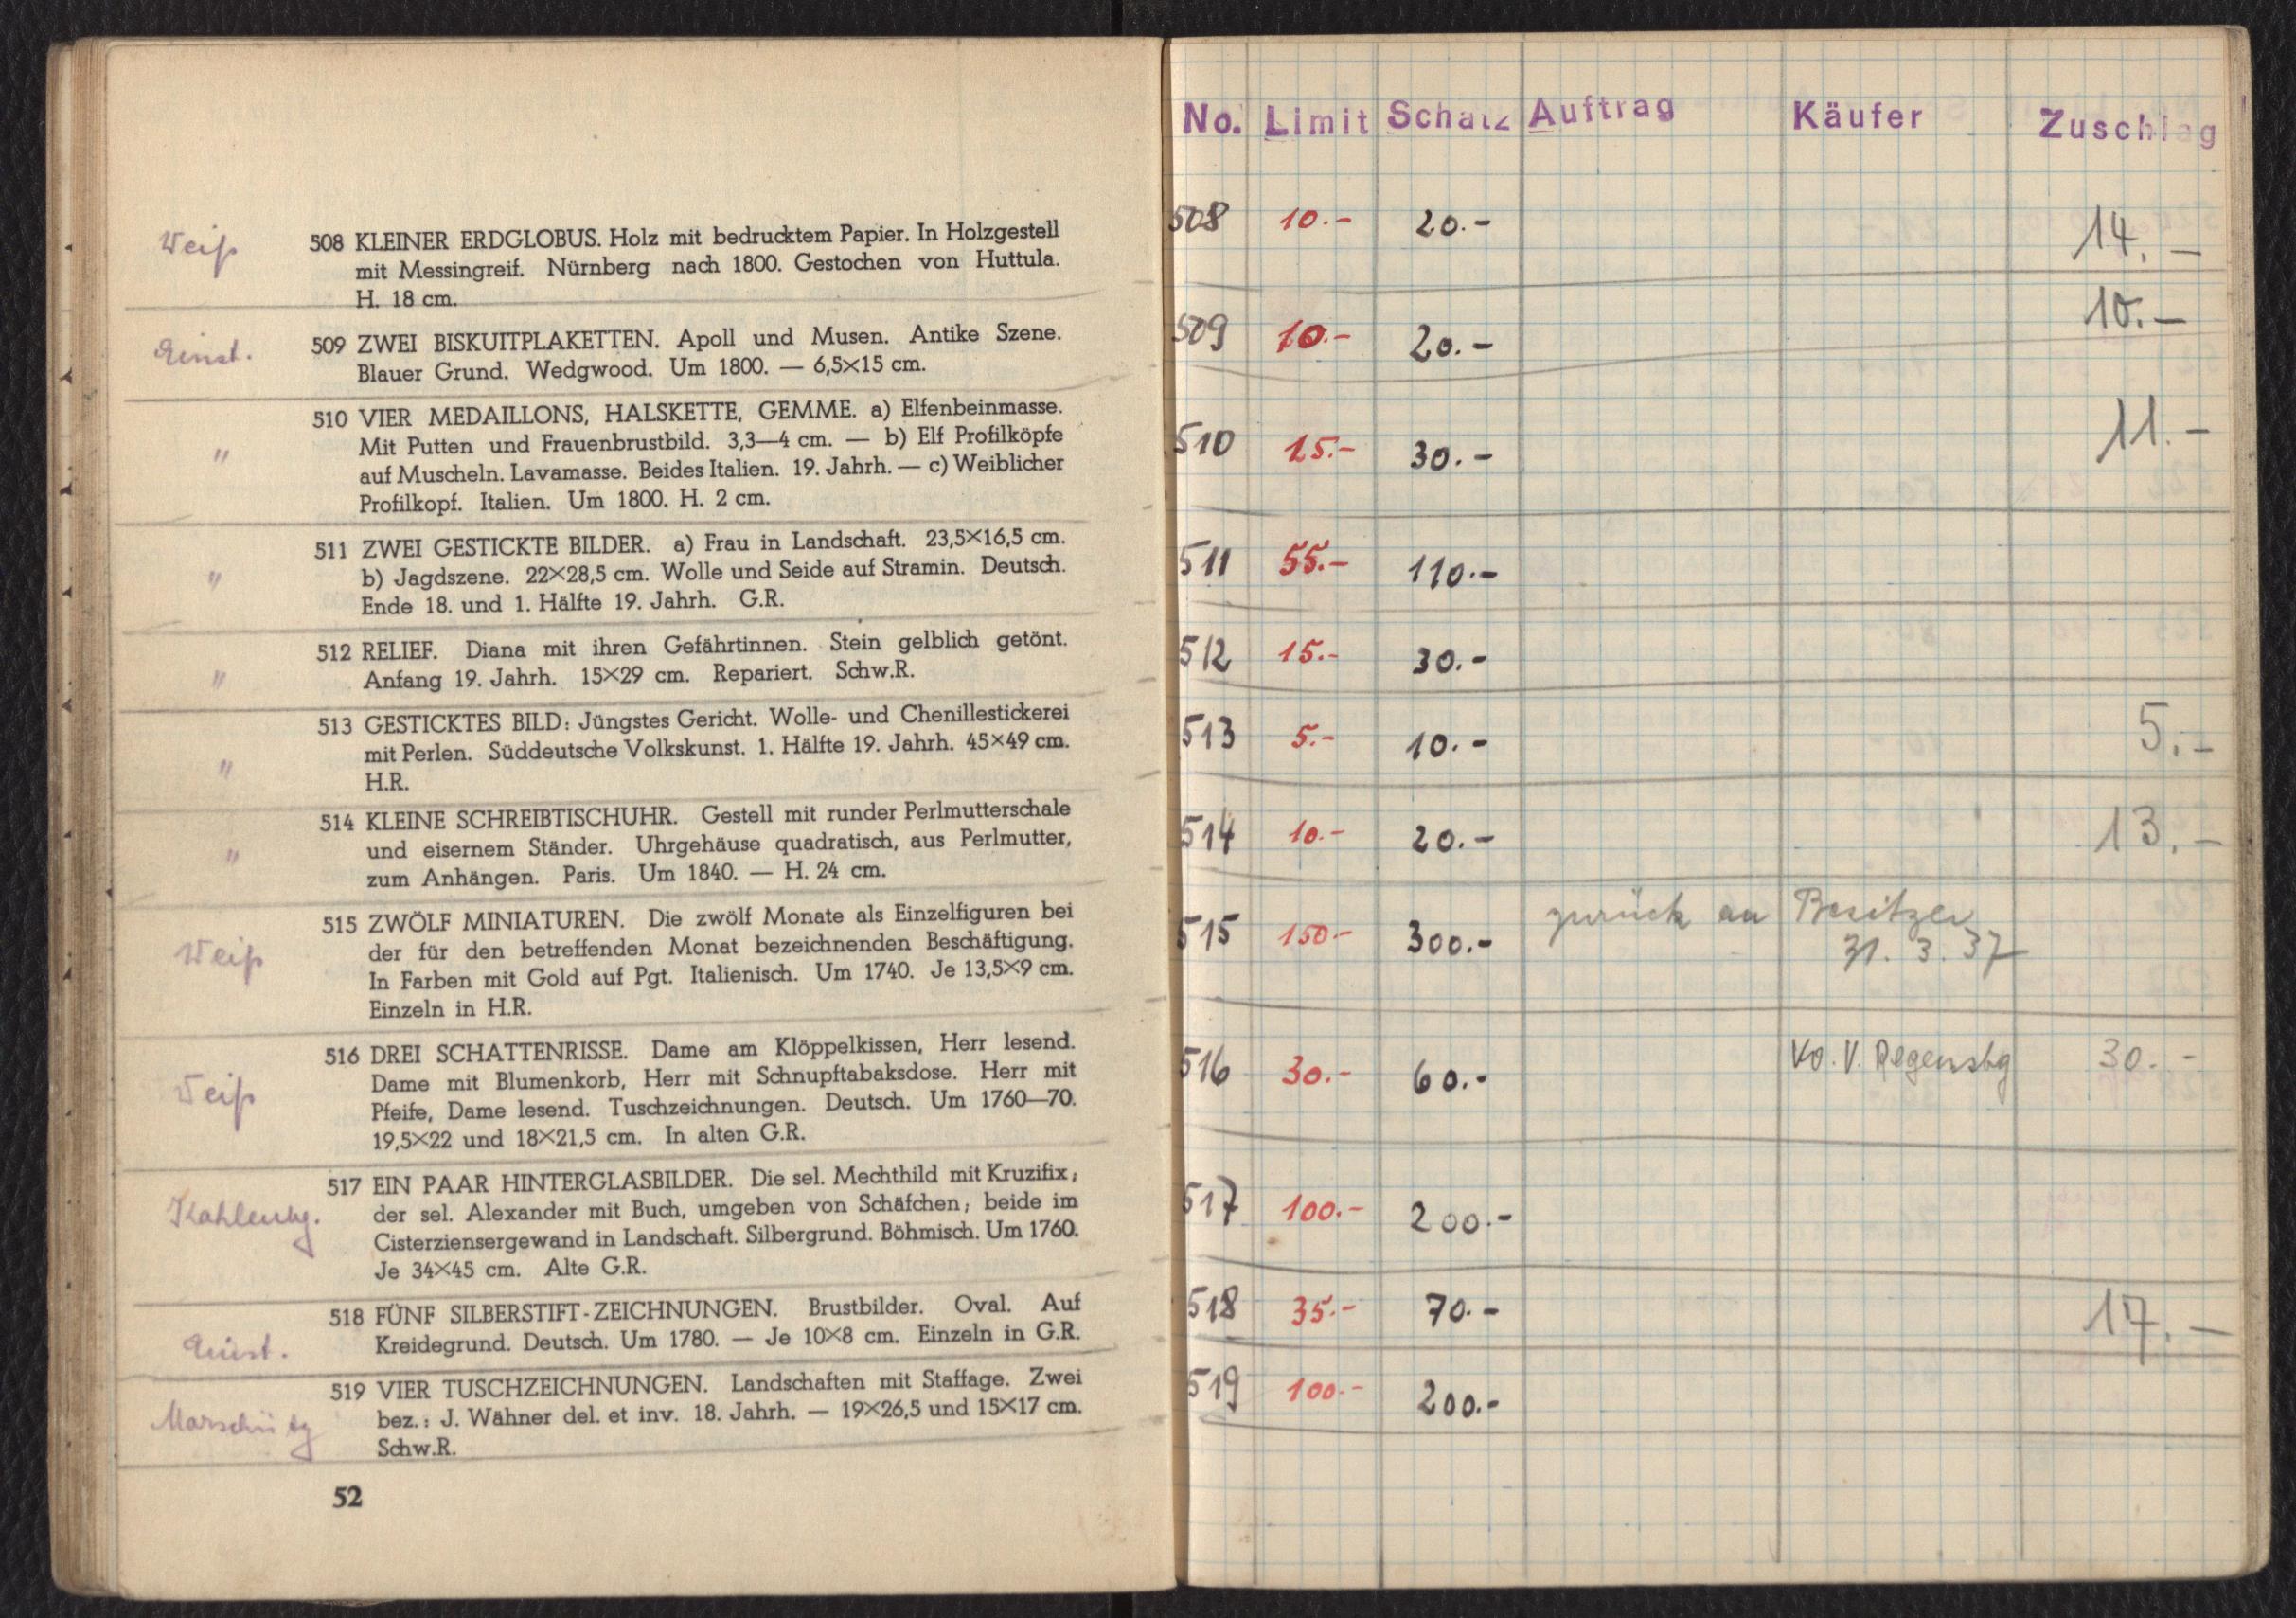 Weiß
508 KLEINER ERDGLOBUS. Holz mit bedrucktem Papier. In Holzgestell
mit Messingreif. Nürnberg nach 1800. Gestochen von Huttula.
H. 18 cm.
509 ZWEI BISKUITPLAKETTEN. Apoll und Musen. Antike Szene.
Blauer Grund. Wedgwood. Um 1800. — 6,5×15 cm.
" 510 VIER MEDAILLONS, HALSKETTE, GEMME. a) Elfenbeinmasse.
Mit Putten und Frauenbrustbild. 3,3—4 cm. — b) Elf Profilköpfe
auf Muscheln. Lavamasse. Beides Italien. 19. Jahrh. — c) Weiblicher
Profilkopf. Italien. Um 1800. H. 2 cm.
" 511 ZWEI GESTICKTE BILDER. a) Frau in Landschaft. 23,5×16,5 cm.
b) Jagdszene. 22×28,5 cm. Wolle und Seide auf Stramin. Deutsch.
Ende 18. und 1. Hälfte 19. Jahrh. G.R.
" 512 RELIEF. Diana mit ihren Gefährtinnen. Stein gelblich getönt.
Anfang 19. Jahrh. 15×29 cm. Repariert. Schw.R.
" 513 GESTICKTES BILD: Jüngstes Gericht. Wolle- und Chenillestickerei
mit Perlen. Süddeutsche Volkskunst. 1. Hälfte 19. Jahrh. 45×49 cm.
H.R.
" 514 KLEINE SCHREIBTISCHUHR. Gestell mit runder Perlmutterschale
und eisernem Ständer. Uhrgehäuse quadratisch, aus Perlmutter,
zum Anhängen. Paris. Um 1840. — H. 24 cm.
Weiß
515 ZWÖLF MINIATUREN. Die zwölf Monate als Einzelfiguren bei
der für den betreffenden Monat bezeichnenden Beschäftigung.
In Farben mit Gold auf Pgt. Italienisch. Um 1740. Je 13,5×9 cm.
Einzeln in H.R.
Weiß
516 DREI SCHATTENRISSE. Dame am Klöppelkissen, Herr lesend.
Dame mit Blumenkorb, Herr mit Schnupftabaksdose. Herr mit
Pfeife, Dame lesend. Tuschzeichnungen. Deutsch. Um 1760—70.
19,5×22 und 18×21,5 cm. In alten G.R.
Kahlenbg.
517 EIN PAAR HINTERGLASBILDER. Die sel. Mechthild mit Kruzifix;
der sel. Alexander mit Buch, umgeben von Schäfchen; beide im
Cisterziensergewand in Landschaft. Silbergrund. Böhmisch. Um 1760.
Je 34×45 cm. Alte G.R.
518 FÜNF SILBERSTIFT-ZEICHNUNGEN. Brustbilder. Oval. Auf
Kreidegrund. Deutsch. Um 1780. — Je 10×8 cm. Einzeln in G.R.
519 VIER TUSCHZEICHNUNGEN. Landschaften mit Staffage. Zwei
bez.: J. Wähner del. et inv. 18. Jahrh. — 19×26,5 und 15×17 cm.
Schw.R.
52
No. Limit Schatz Auftrag Käufer Zuschlag
508 10.- 20.- 14.-
509 10.- 20.- 10.-
510 15.- 30.- 11.-
511 55.- 110.-
512 15.- 30.-
513 5.- 10.- 5.-
514 10.- 20.- 13.-
515 150.- 300.- zurück an Besitzer
31. 3. 37
516 30.- 60.- V. Regensbg 30.-
517 100.- 200.-
518 35.- 70.- 17.-
519 100.- 200.-